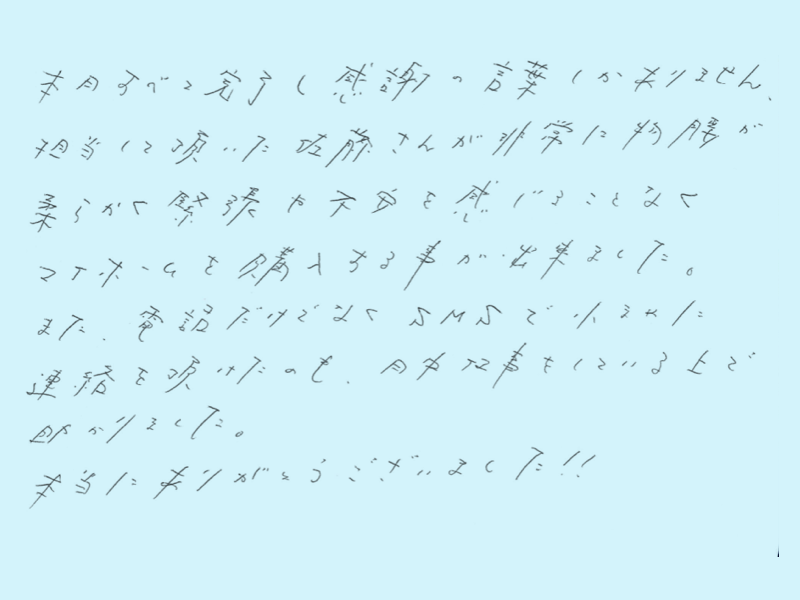 本日すべて完了し感謝の言葉しかありません、
担当して頂いた佐藤さんが非常に物腰が
柔らかく緊張や不安を感じることなく
マイホームを購入する事が出来ました。
また、電話だけでなくSMSで小まめに
連絡を頂けたのも、日中仕事をしている上で
助かりました。
本当にありがとうございました!!